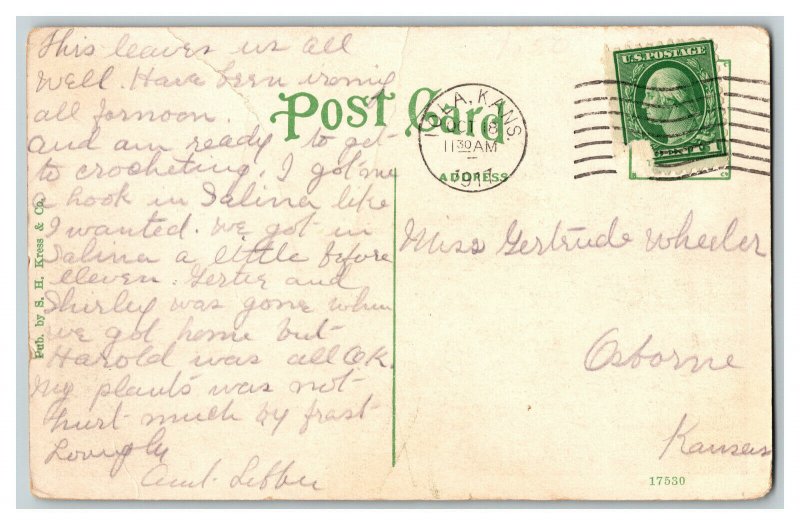 This leaves us all
well. Have been ironing
all fornoon.
and am ready to get
to crocheting. I got me
a hook in Salina like
I wanted. We got in
Salina a little before
eleven. Gertie and
Shirley was gone when
we got home but
Harold was all O.K.
My plants was not
hurt much by frost
Lovingly
Aunt Libbie
Pub. by S. H. Kress & Co.
Post Card
ADDRESS
IOLA, KANS.
OCT 18
11 30 AM
U.S. POSTAGE
Miss Gertrude Wheeler
Osborne
Kansas
17530